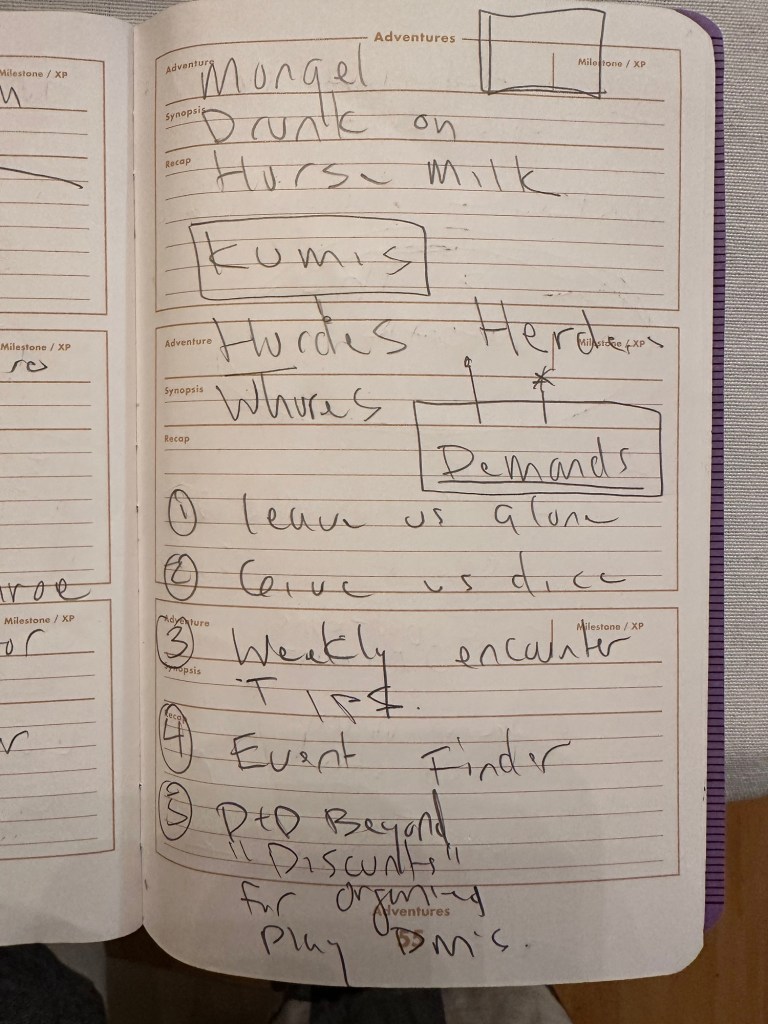 Milestone / XP
Milestone / XP
Milestone / XP
or
Adventures
Adventure
Milestone / XP
Mongel
Synopsis
Drunk on
Recap
Horse Milk
Kumis
Adventure
Milestone / XP
Hordes Herders
Synopsis
Whores
Recap
Demands
① leave us alone
② Give us dice
Adventure
Milestone / XP
③ Weekly encounter
Synopsis
Tips.
Recap
④ Event Finder
⑤ D+D Beyond
"Discounts"
for organized
Adventures
Play DM's.
55